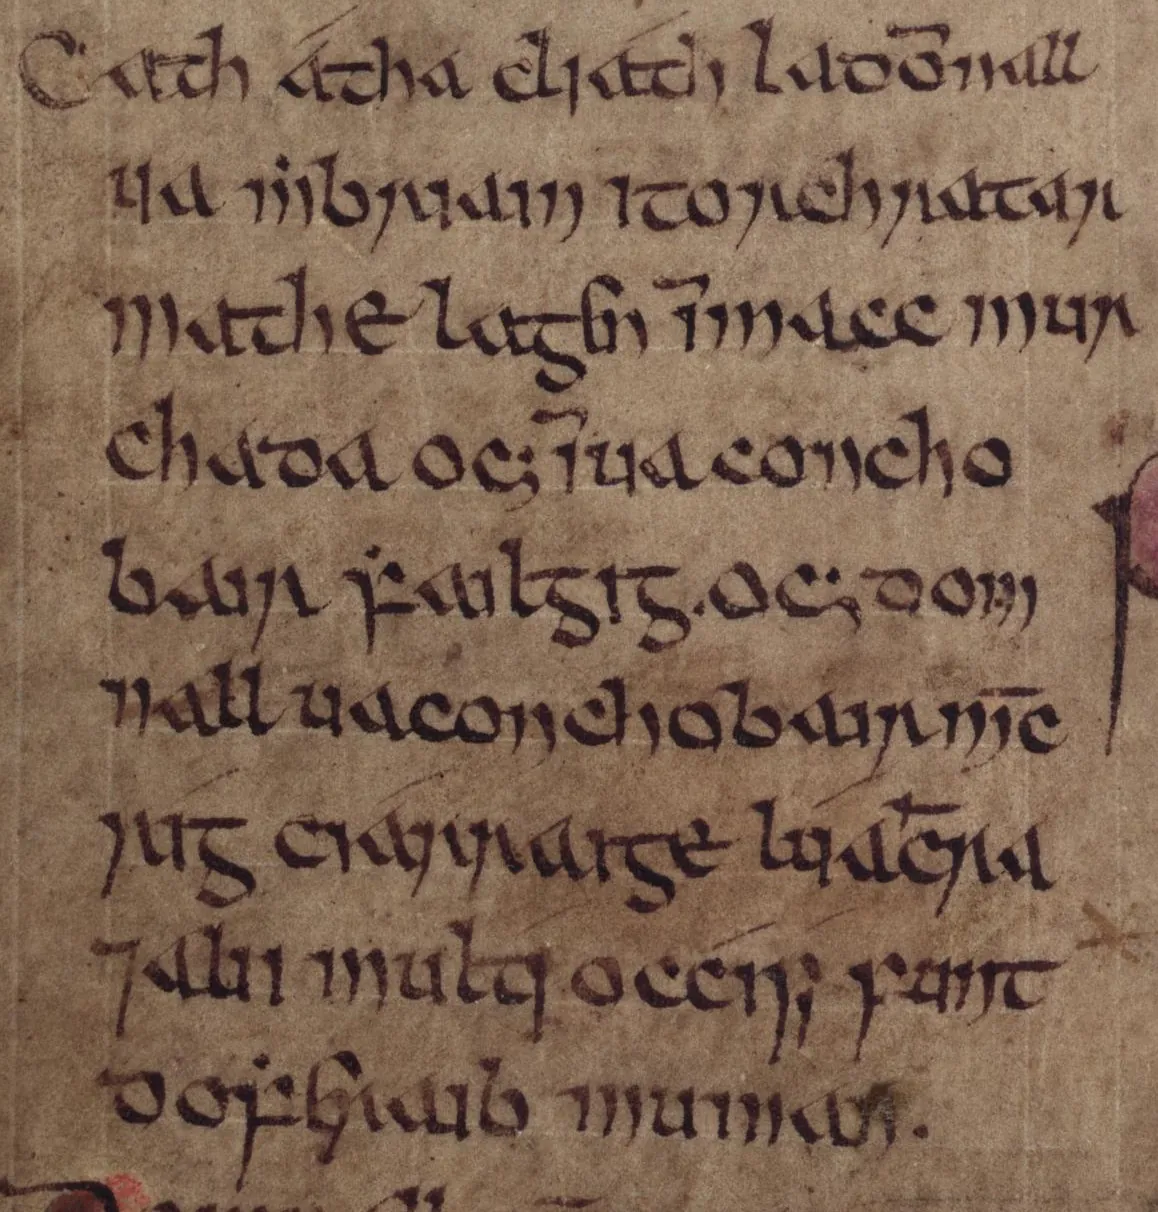 Cath átha cliath la dōnall
ua mbriain i torchratar
mathe lagēn īm macc mur
chada ocꝫ im ua concho
bair ḟailgig. ocꝫ dom
nall ua conchobair mīc
ríg ciarraige luachra
⁊ alii multi occisi sunt
do ḟeraib muman.